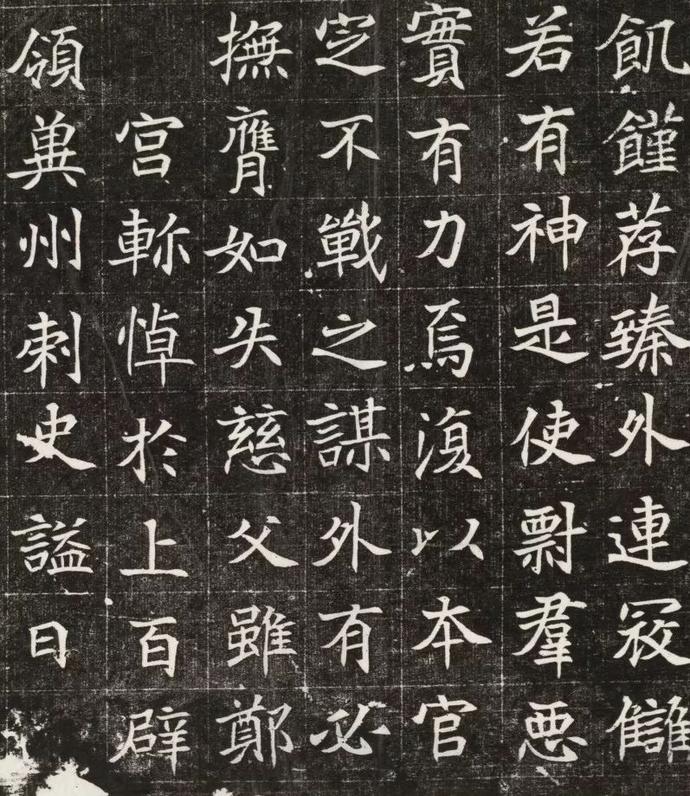 飢饉荐臻外連寇讎
若有神是使羣惡
實有力焉復以本官
定不戰之謀外有必
撫膺如失慈父雖鄭
宮軫悼於上百辟
領冀州刺史謚曰